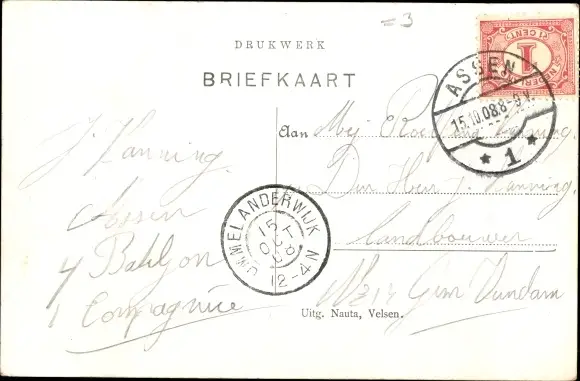 =3
DRUKWERK
BRIEFKAART
NEDERLAND
1 CENT
1
ASSEN
15.10.08.8-9V.
1
Aan Mej
Den Heer J. Hanning
landbouwer
J Hanning
Assen
4 Bataljon
1 Compagnie
UMMELANDERWIJK
15
OCT
08
12-4N
Uitg. Nauta, Velsen.